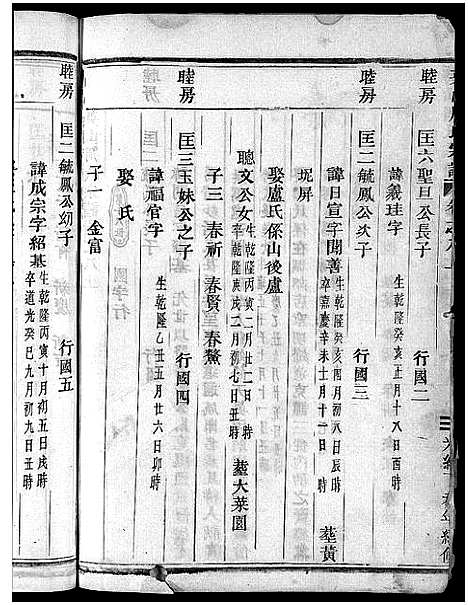 睦房 匡六聖旦公長子 行國二
諱義珪字 生乾隆癸亥正月十八日酉時
睦房 匡二毓鳳公次子 行國三
諱日宣字聞善 生乾隆癸亥四月初八日辰時 卒嘉慶辛未士月十一日 塟黄
坭屏
娶盧氏係山後盧
聰文公女 生乾隆丙寅二月廿二日 時 卒乾隆庚戌二月初七日丑時 塟大菜園
子三 春祈 春賢 春鰲
睦房 匡三玉妹公之子 行國四
諱福官字 生乾隆乙丑五月廿六日卯時
娶 氏
子一 金富
睦房 匡二毓鳳公幼子 行國五
諱成宗字紹基 生乾隆丙寅十月初五日戌時 卒道光癸巳九月初九日丑時